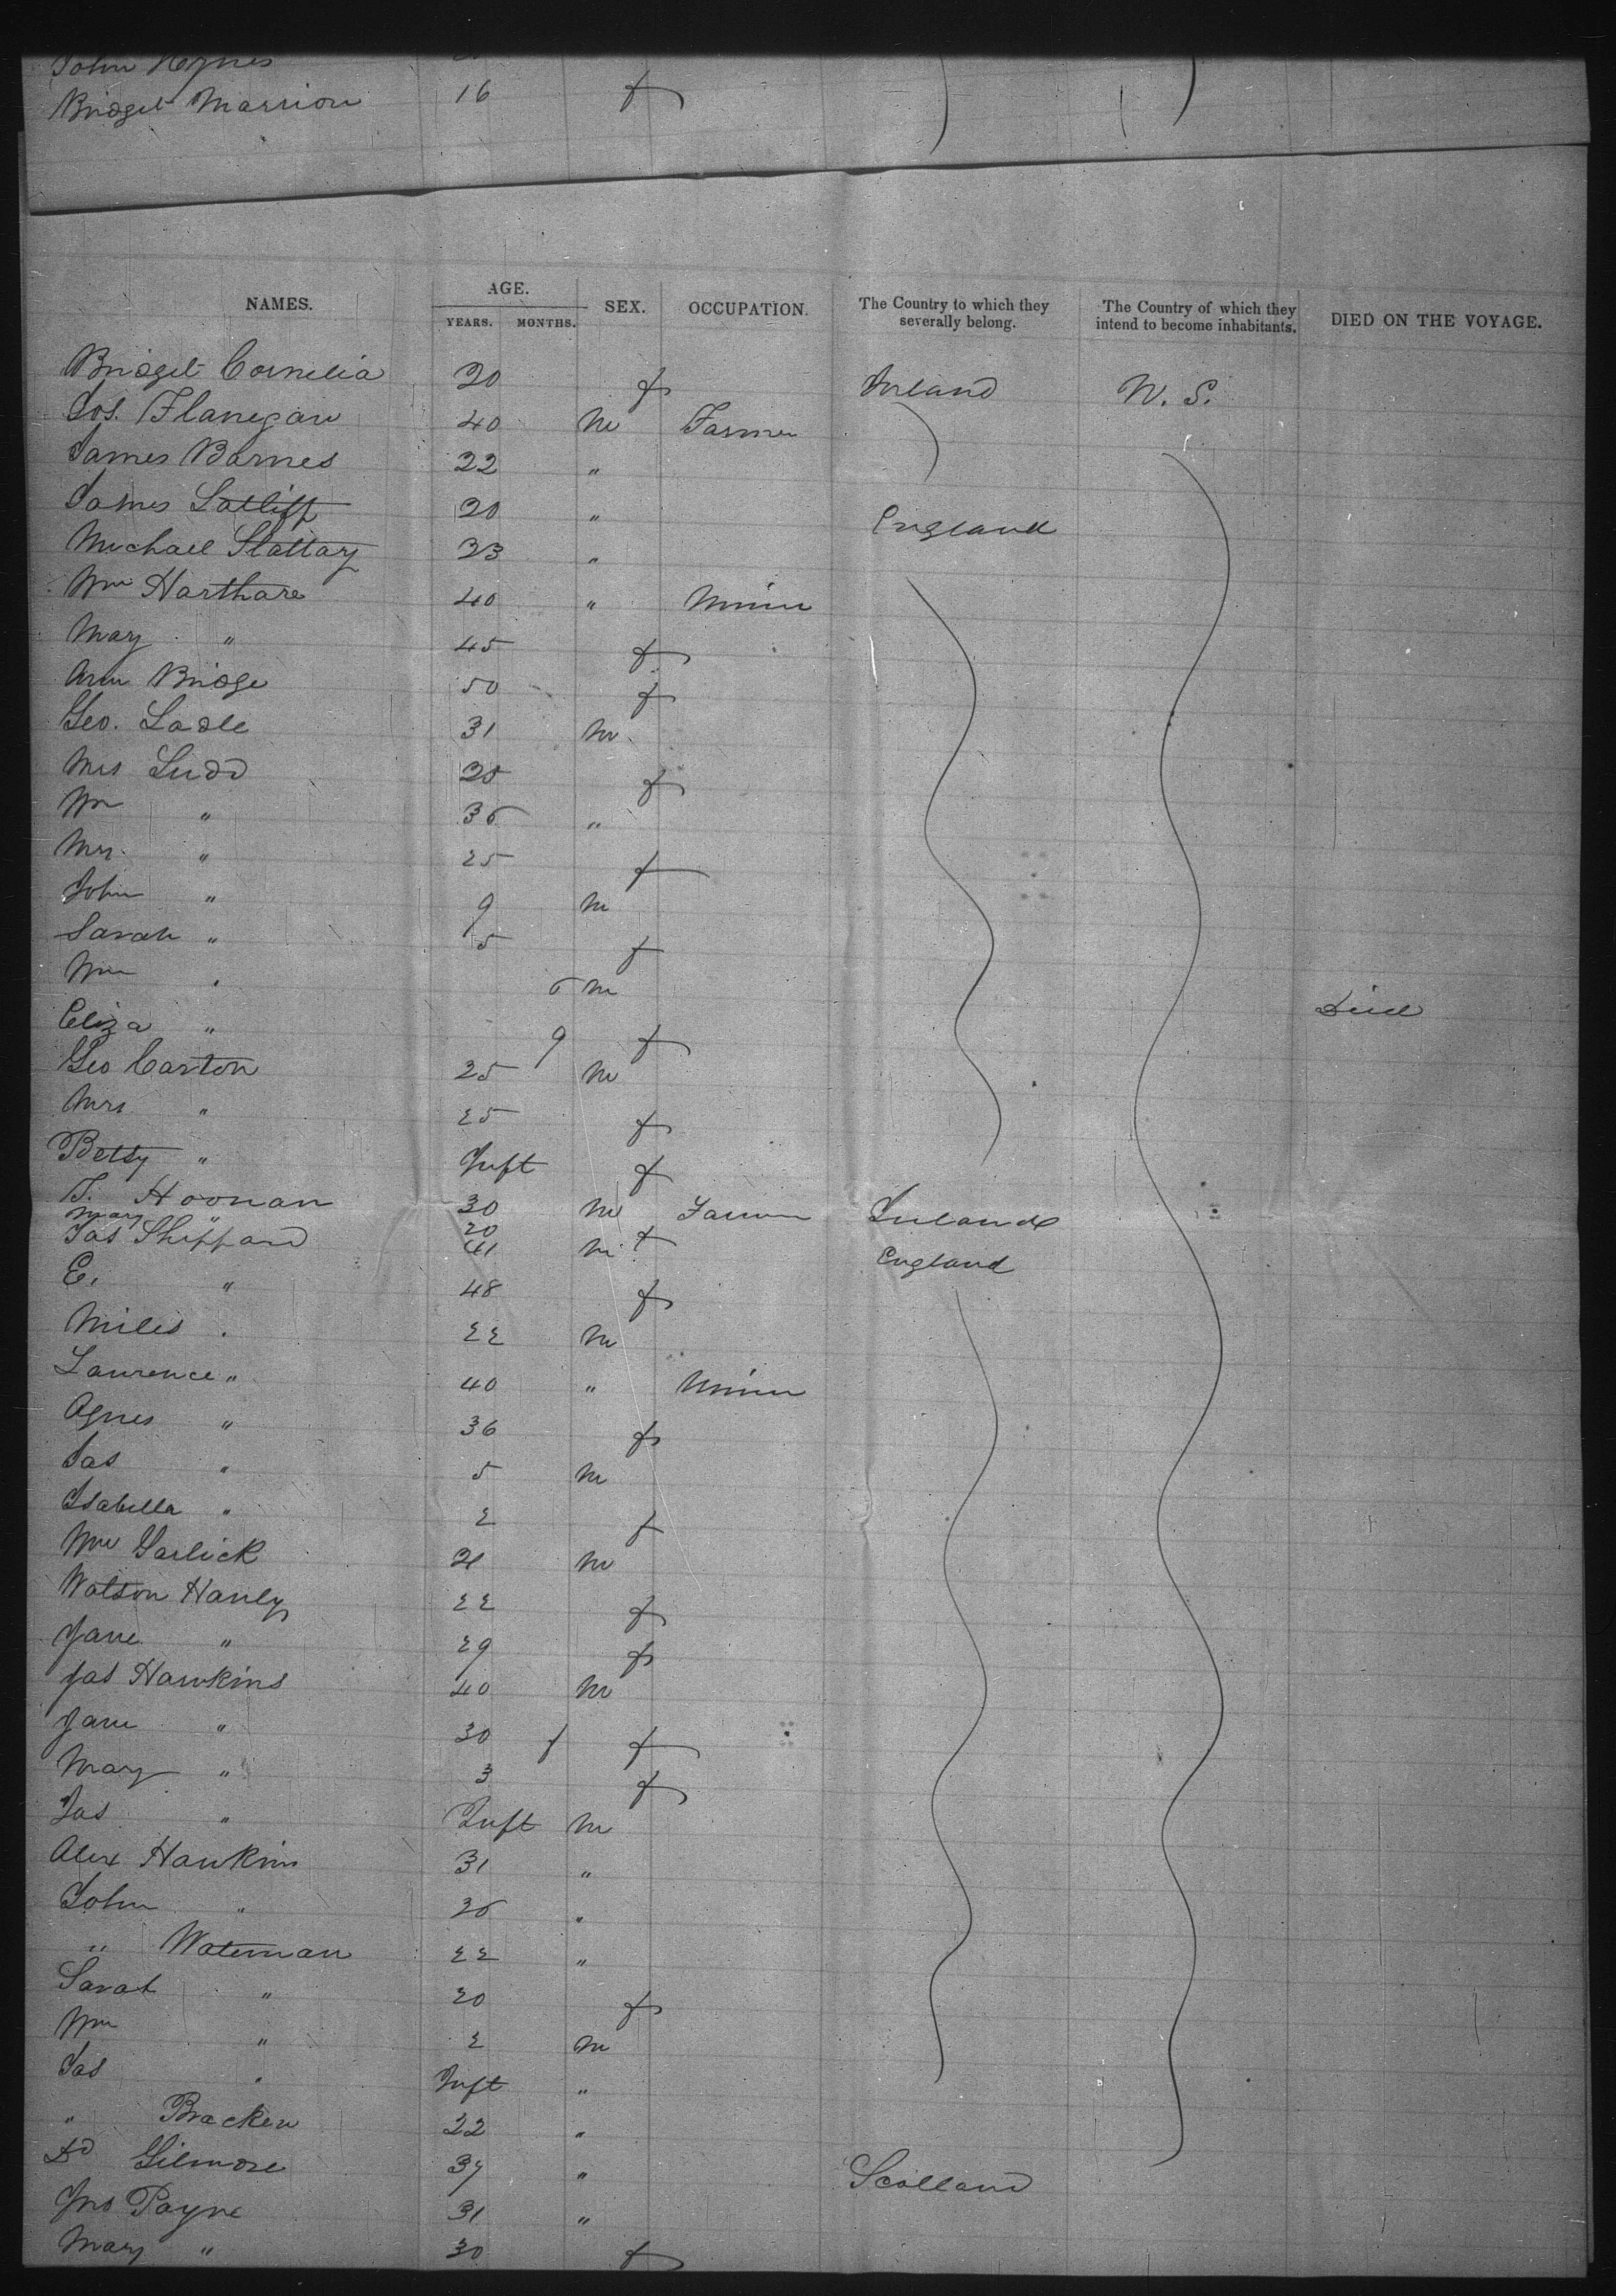 John Hynes
Bridget Marrion 16 f
NAMES. AGE. YEARS. MONTHS. SEX. OCCUPATION. The Country to which they severally belong. The Country of which they intend to become inhabitants. DIED ON THE VOYAGE.
Bridget Cornelia 20 f Irland U. S.
Jos. Flanegan 40 m Farmer
James Barnes 22 "
James Satliff 20 " England
Michael Slattary 23 "
Wm Harthare 40 " Miner
Mary " 45 f
Ann Bridge 50 f
Geo. Ladle 31 m
Mrs Ludd 25 f
Wm " 36 "
Mrs. " 25 f
John " 9 m
Sarah " 5 f
Wm . 6 m Died
Eliza " 9 f
Geo Carton 25 m
Mrs " 25 f
Betsy " Inft f
T. Hoonan 30 m Farmer Ireland
Mary " 20 f
Jas Shippard 41 m England
E. " 48 f
Miles . 22 m
Laurence " 40 " Miner
Agnes " 36 f
Jas " 5 m
Isabella " 2 f
Wm Garlick 21 m
Watson Hanly 22 f
Jane " 29 f
Jas Hawkins 40 m
Jane " 30 f
Mary " 3 f
Jas " Inft m
Alex Hawkins 31 "
John " 26 "
" Waterman 22 "
Sarah " 20 f
Wm " 2 m
Jas " Inft "
" Bracken 22 "
Dd Gilmore 37 " Scotland
Jno Payne 31 "
Mary " 30 f